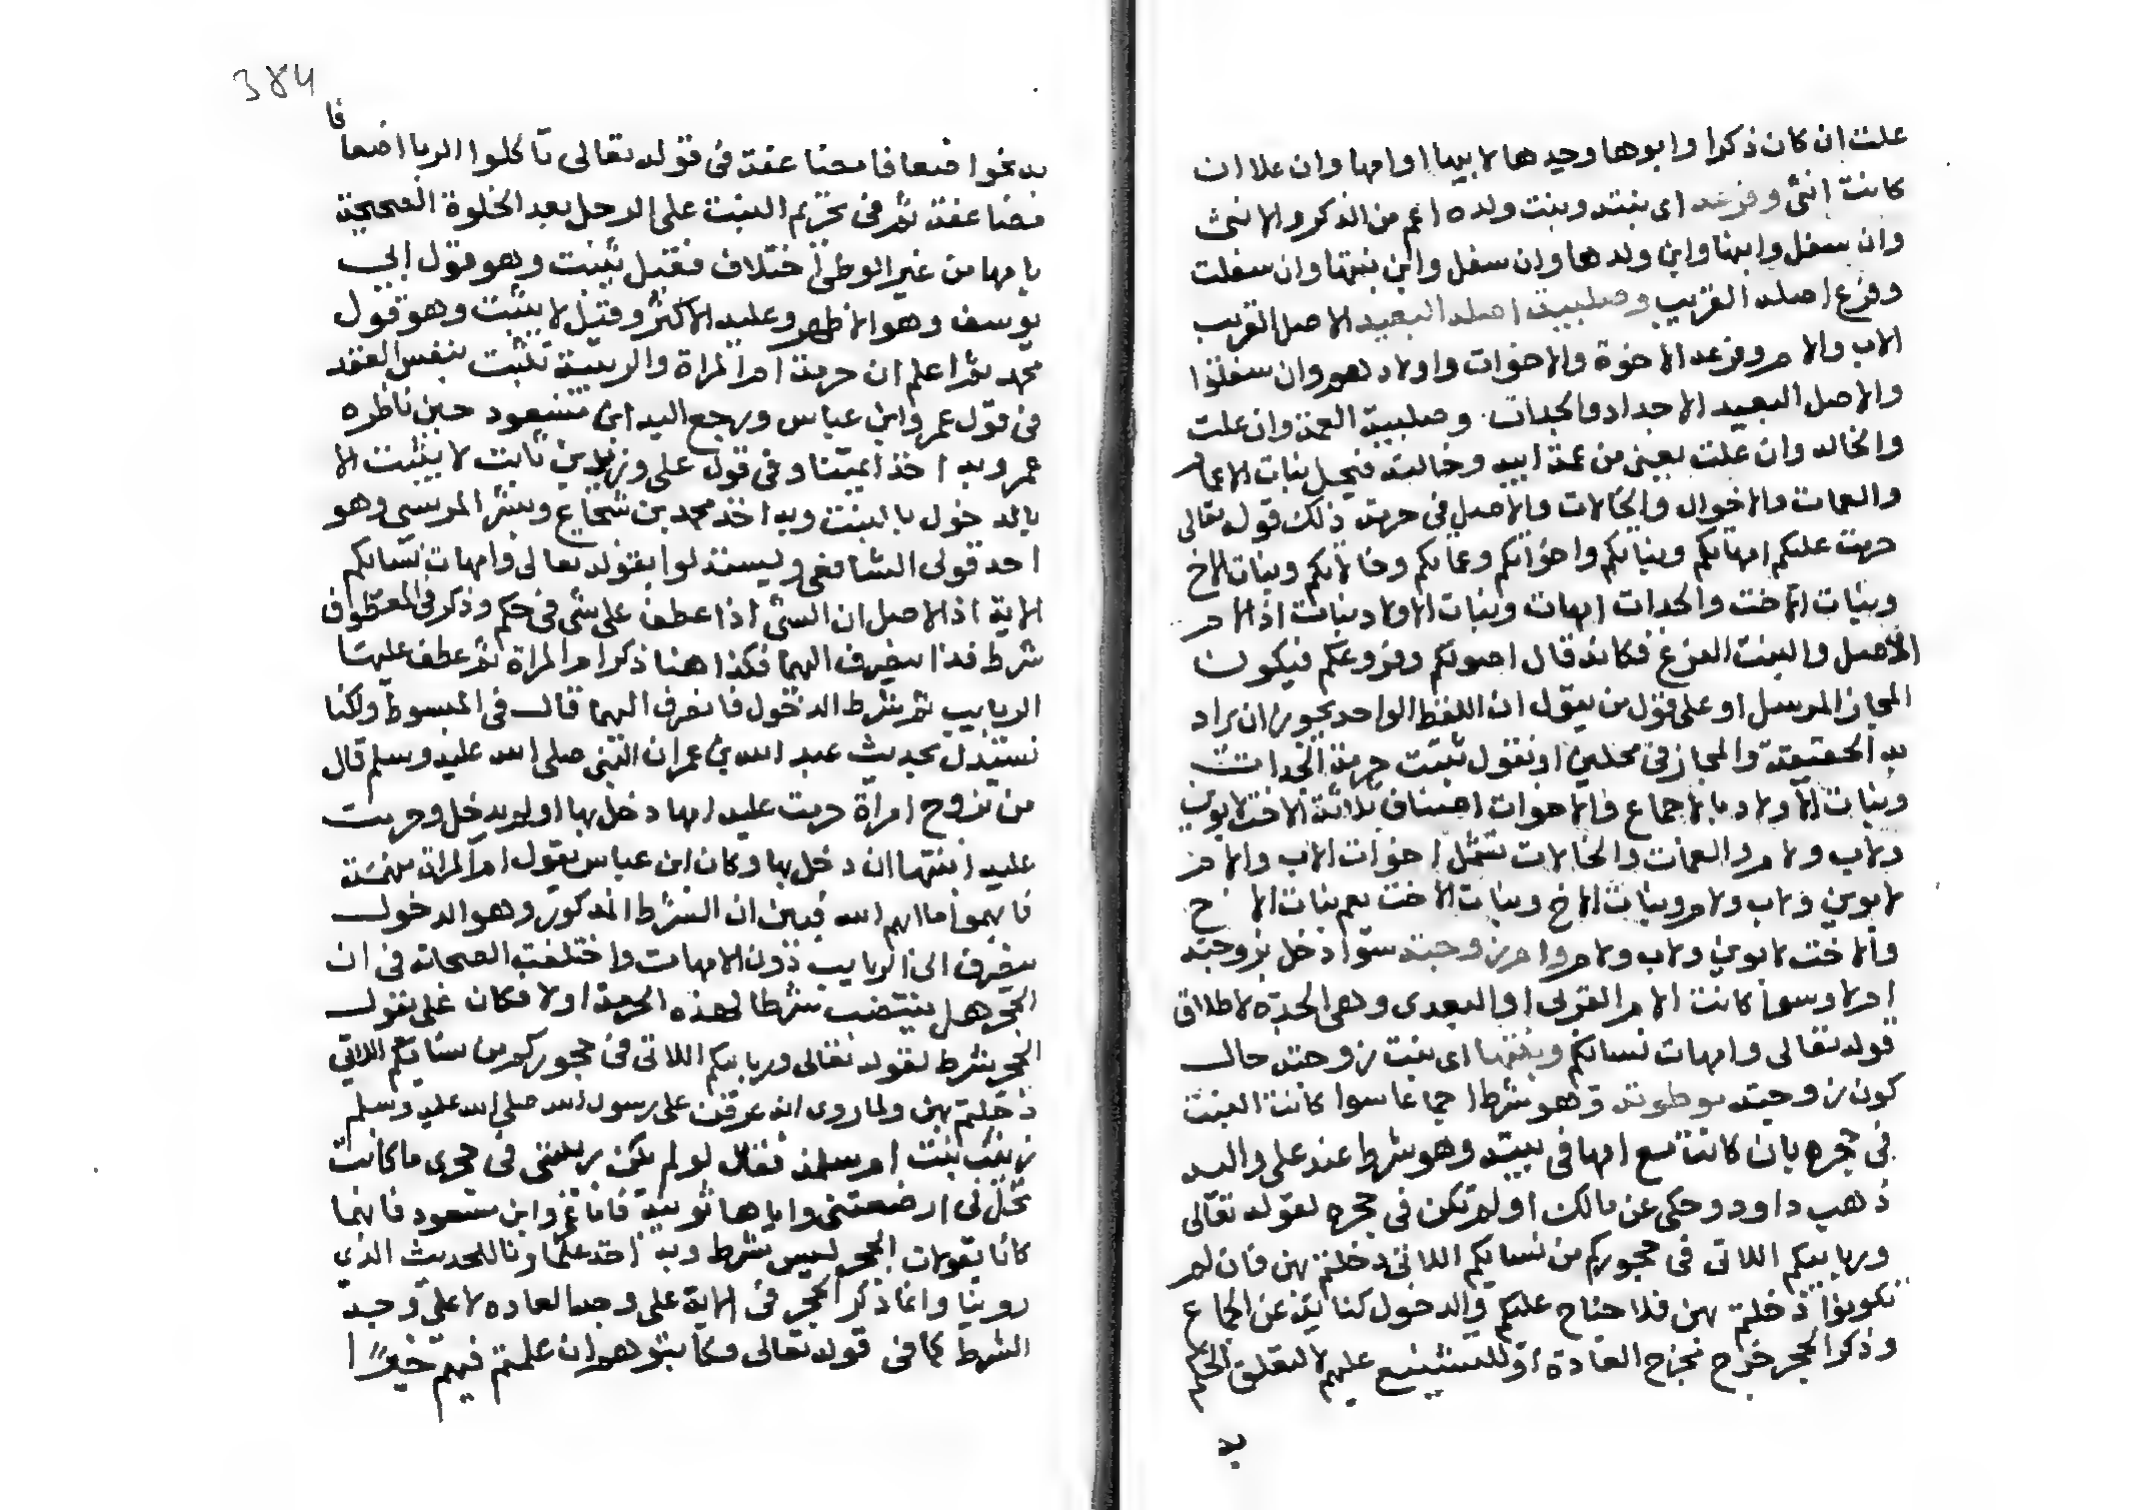 علت ان كان ذكرا وابوها وجدها لابيها او امها وان علا ان
كانت انثى وفرعه اى بنته وبنت ولده اعم من الذكر والانثى
وان سفل وابنها وابن ولدها وان سفل وابن بنتها وان سفلت
وفرع اصله القريب وصلبية اصله البعيد الاصل القريب
الاب والام وفرعه الاخوة والاخوات واولادهم وان سفلوا
والاصل البعيد الاجداد والجدات وصلبية العمة وان علت
والخالة وان علت يعنى من عمة ابيه وخالته فيحل بنات الاعمام
والعمات والاخوال والخالات والاصل فى حرمة ذلك قوله تعالى
حرمت عليكم امهاتكم وبناتكم واخواتكم وعماتكم وخالاتكم وبنات الاخ
وبنات الاخت والجدات امهات وبنات الاولاد بنات اذ الام
الاصل والبنت الفرع فكانه قال اصولكم وفروعكم فيكون
المجاز المرسل او على قول من يقول ان اللفظ الواحد يجوز ان يراد
به الحقيقة والمجاز فى محلين او نقول تثبت حرمة الجدات
وبنات الاولاد بالاجماع فالاخوات اصناف ثلاثة الاخت لابوين
ولاب ولام والعمات والخالات تشمل اخوات الاب والام
لابوين ولاب ولام وبنات الاخ وبنات الاخت يعم بنات الاخ
والاخت لابوين ولاب ولام وام زوجته سواء دخل بزوجته
ام لا وسوا كانت الام القربى او البعدى وهى الجدة لاطلاق
قوله تعالى وامهات نسائكم وبنتها اى بنت زوجته حال
كون زوجته موطوئة وهو شرط اجماعا سوا كانت البنت
فى حجره بان كانت مع امها فى بيته وهو شرط عند على واليه
ذهب داود وحكى عن مالك او لم تكن فى حجره لقوله تعالى
وربائبكم اللاتى فى حجوركم من نسائكم اللاتى دخلتم بهن فان لم
تكونوا دخلتم بهن فلا جناح عليكم والدخول كناية عن الجماع
وذكر الحجر خرج مخرج العادة او للتشنيع عليهم لا لتعلق الحكم
به
384
به نحو اضعافا مضاعفة فى قوله تعالى تاكلوا الربا اضعافا
مضاعفة ثم فى تحريم البنت على الرجل بعد الخلوة الصحيحة
بامها من غير الوطئ اختلاف فقيل يثبت وهو قول ابى
يوسف وهو الاظهر وعليه الاكثر وقيل لا يثبت وهو قول
محمد ثم اعلم ان حرمة ام المراة والربيبة تثبت بنفس العقد
فى قول عمر وابن عباس ورجع اليه ابن مسعود حين ناظره
عمر وبه اخذ ائمتنا وفى قول على وزيد بن ثابت لا يثبت الا
بالدخول بالبنت وبه اخذ محمد بن شجاع وبشر المريسى وهو
احد قولى الشافعى ويستدلوا بقوله تعالى وامهات نسائكم
الاية اذ الاصل ان الشئ اذا عطف على شئ فى حكم وذكر فى المعطوف
شرط فذا ينصرف اليهما فكذا هنا ذكر ام المراة ثم عطف عليها
الربايب ثم شرط الدخول فانصرف اليهما قال فى المبسوط ولكنا
نستدل بحديث عبد الله بن عمر ان النبى صلى الله عليه وسلم قال
من تزوج امراة حرمت عليه امها دخل بها او لم يدخل وحرمت
عليه ابنتها ان دخل بها وكان ابن عباس يقول ام المراة مبهمة
فابهموا ما ابهم الله فبين ان الشرط المذكور وهو الدخول
ينصرف الى الربايب دون الامهات واختلفت الصحابة فى ان
الحجر هل ينتصب شرطا لهذه الحرمة او لا فكان على يقول
الحجر شرط لقوله تعالى وربائبكم اللاتى فى حجوركم من نسائكم اللاتى
دخلتم بهن ولما روى انه عرضت على رسول الله صلى الله عليه وسلم
زينب بنت ام سلمة فقال لو لم تكن ربيبتى فى حجرى ما كانت
تحل لى ارضعتنى واباها ثويبة فاما عمر وابن مسعود فانهما
كانا يقولان الحجر ليس بشرط وبه اخذ علماونا للحديث الذى
روينا وانما ذكر الحجر فى الاية على وجه العاده لا على وجه
الشرط كما فى قوله تعالى فكاتبوهم ان علمتم فيهم خيرا